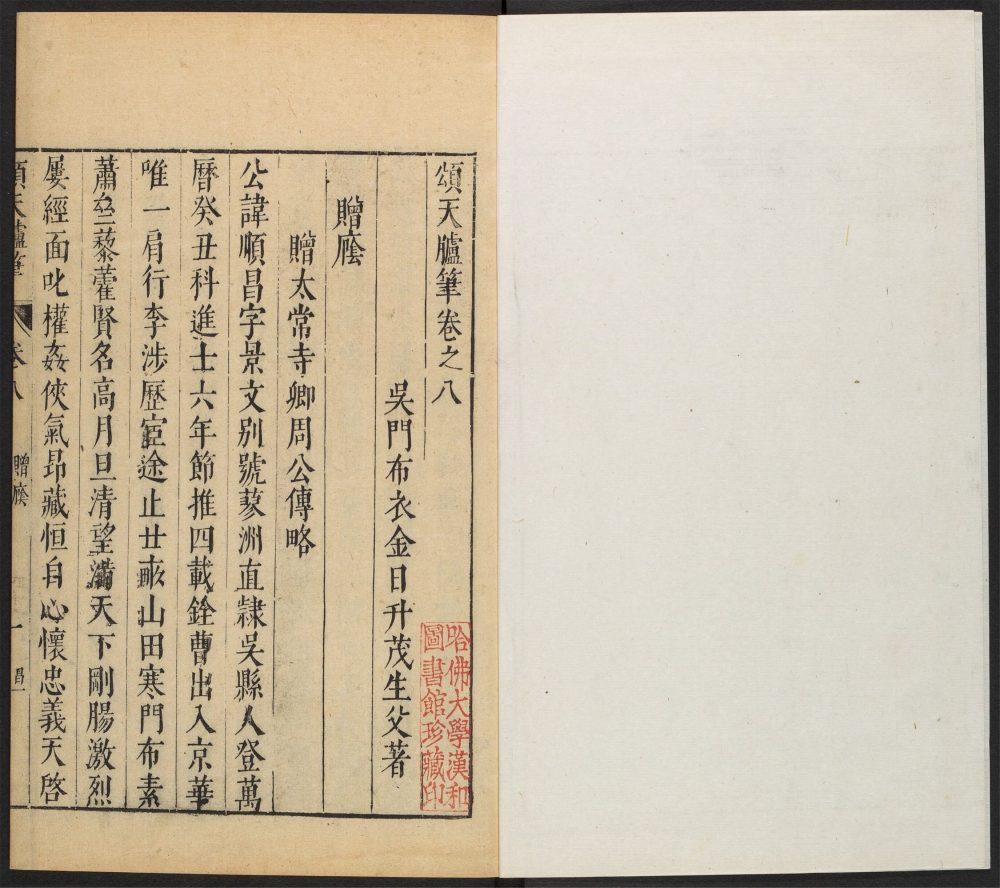 頌天臚筆卷之八
吳門布衣金日升茂生父著
贈廕
贈太常寺卿周公傳略
公諱順昌字景文別號蓼洲直隸吳縣人登萬
曆癸丑科進士六年節推四載銓曹出入京華
唯一肩行李涉歷宦途止廿畝山田寒門布素
蕭然藜藿賢名高月旦清望滿天下剛腸激烈
屡經面叱權姦俠氣昂藏恒自心懷忠義天啓
頌天臚筆
卷八
贈廕
一
昌
哈佛大學漢和
圖書館珍藏印